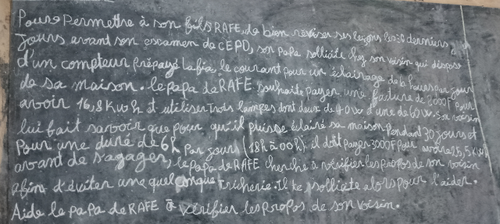 Pour Permettre à son fils RAFE, de bien reviser ses leçons les 30 derniers
Jours avant son examen de CEPD, son papa sollicite chez son voisin qui dispose
d'un compteur prépayé Lafia, le courant pour un éclairage de 6 heures par jour
de sa maison. le papa de RAFE souhaite payer une facture de 2000F pour
avoir 16,8 Kwh et utiliser trois lampes dont deux de 40w d'une de 60w. Sa voisin
lui fait savoir que pour qu'il puisse éclairé sa maison pendant 30 jours et
Pour une duré de 6h Par jours (18h à 00h) il doit payer 3000F pour avoir 25,5Kwh
avant de s'agager, le papa de RAFE cherche à vérifier les propos de son voisin
afin d'éviter une quelconque tricherie. Il te sollicite alors pour l'aider.
Aide le papa de RAFE à vérifier les propos de son voisin.